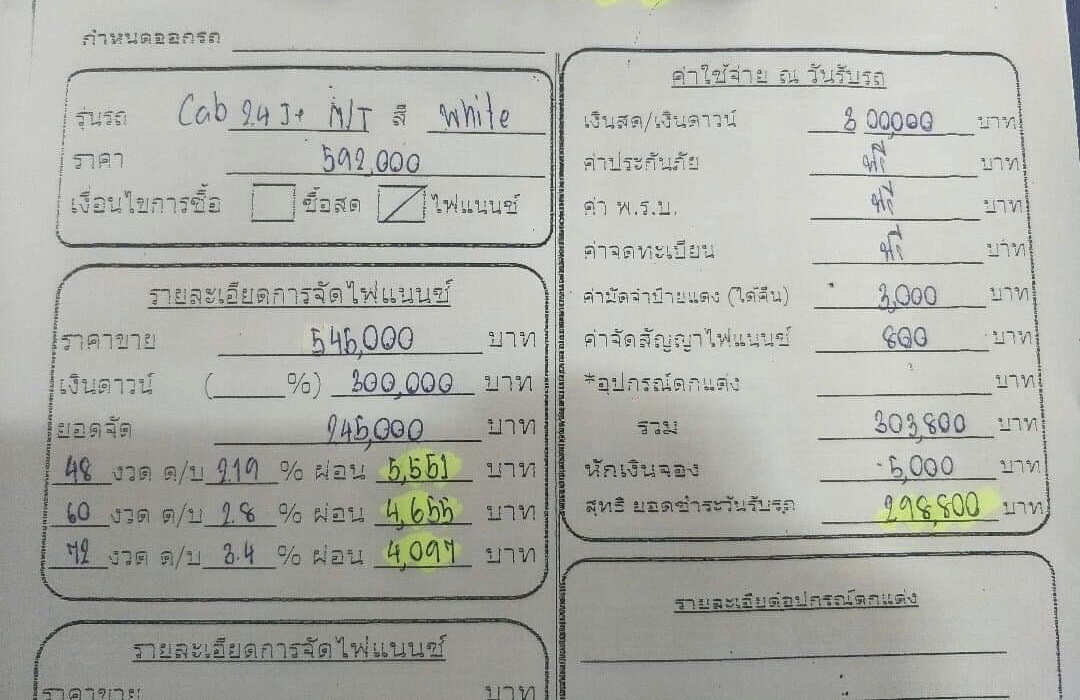 กำหนดออกรถ
รุ่นรถ Cab 2.4 J+ M/T สี White
ราคา 592,000
เงื่อนไขการซื้อ ซื้อสด ไฟแนนซ์
รายละเอียดการจัดไฟแนนซ์
ราคาขาย 545,000 บาท
เงินดาวน์ ( %) 300,000 บาท
ยอดจัด 245,000 บาท
48 งวด ด/บ 2.19 % ผ่อน 5,551 บาท
60 งวด ด/บ 2.8 % ผ่อน 4,655 บาท
72 งวด ด/บ 3.4 % ผ่อน 4,097 บาท
รายละเอียดการจัดไฟแนนซ์
ราคาขาย บาท
ค่าใช้จ่าย ณ วันรับรถ
เงินสด/เงินดาวน์ 300,000 บาท
ค่าประกันภัย ฟรี บาท
ค่า พ.ร.บ. ฟรี บาท
ค่าจดทะเบียน ฟรี บาท
ค่ามัดจำป้ายแดง (ได้คืน) 3,000 บาท
ค่าจัดสัญญาไฟแนนซ์ 800 บาท
*อุปกรณ์ตกแต่ง บาท
รวม 303,800 บาท
หักเงินจอง -5,000 บาท
สุทธิ ยอดชำระวันรับรถ 298,800 บาท
รายละเอียดอุปกรณ์ตกแต่ง